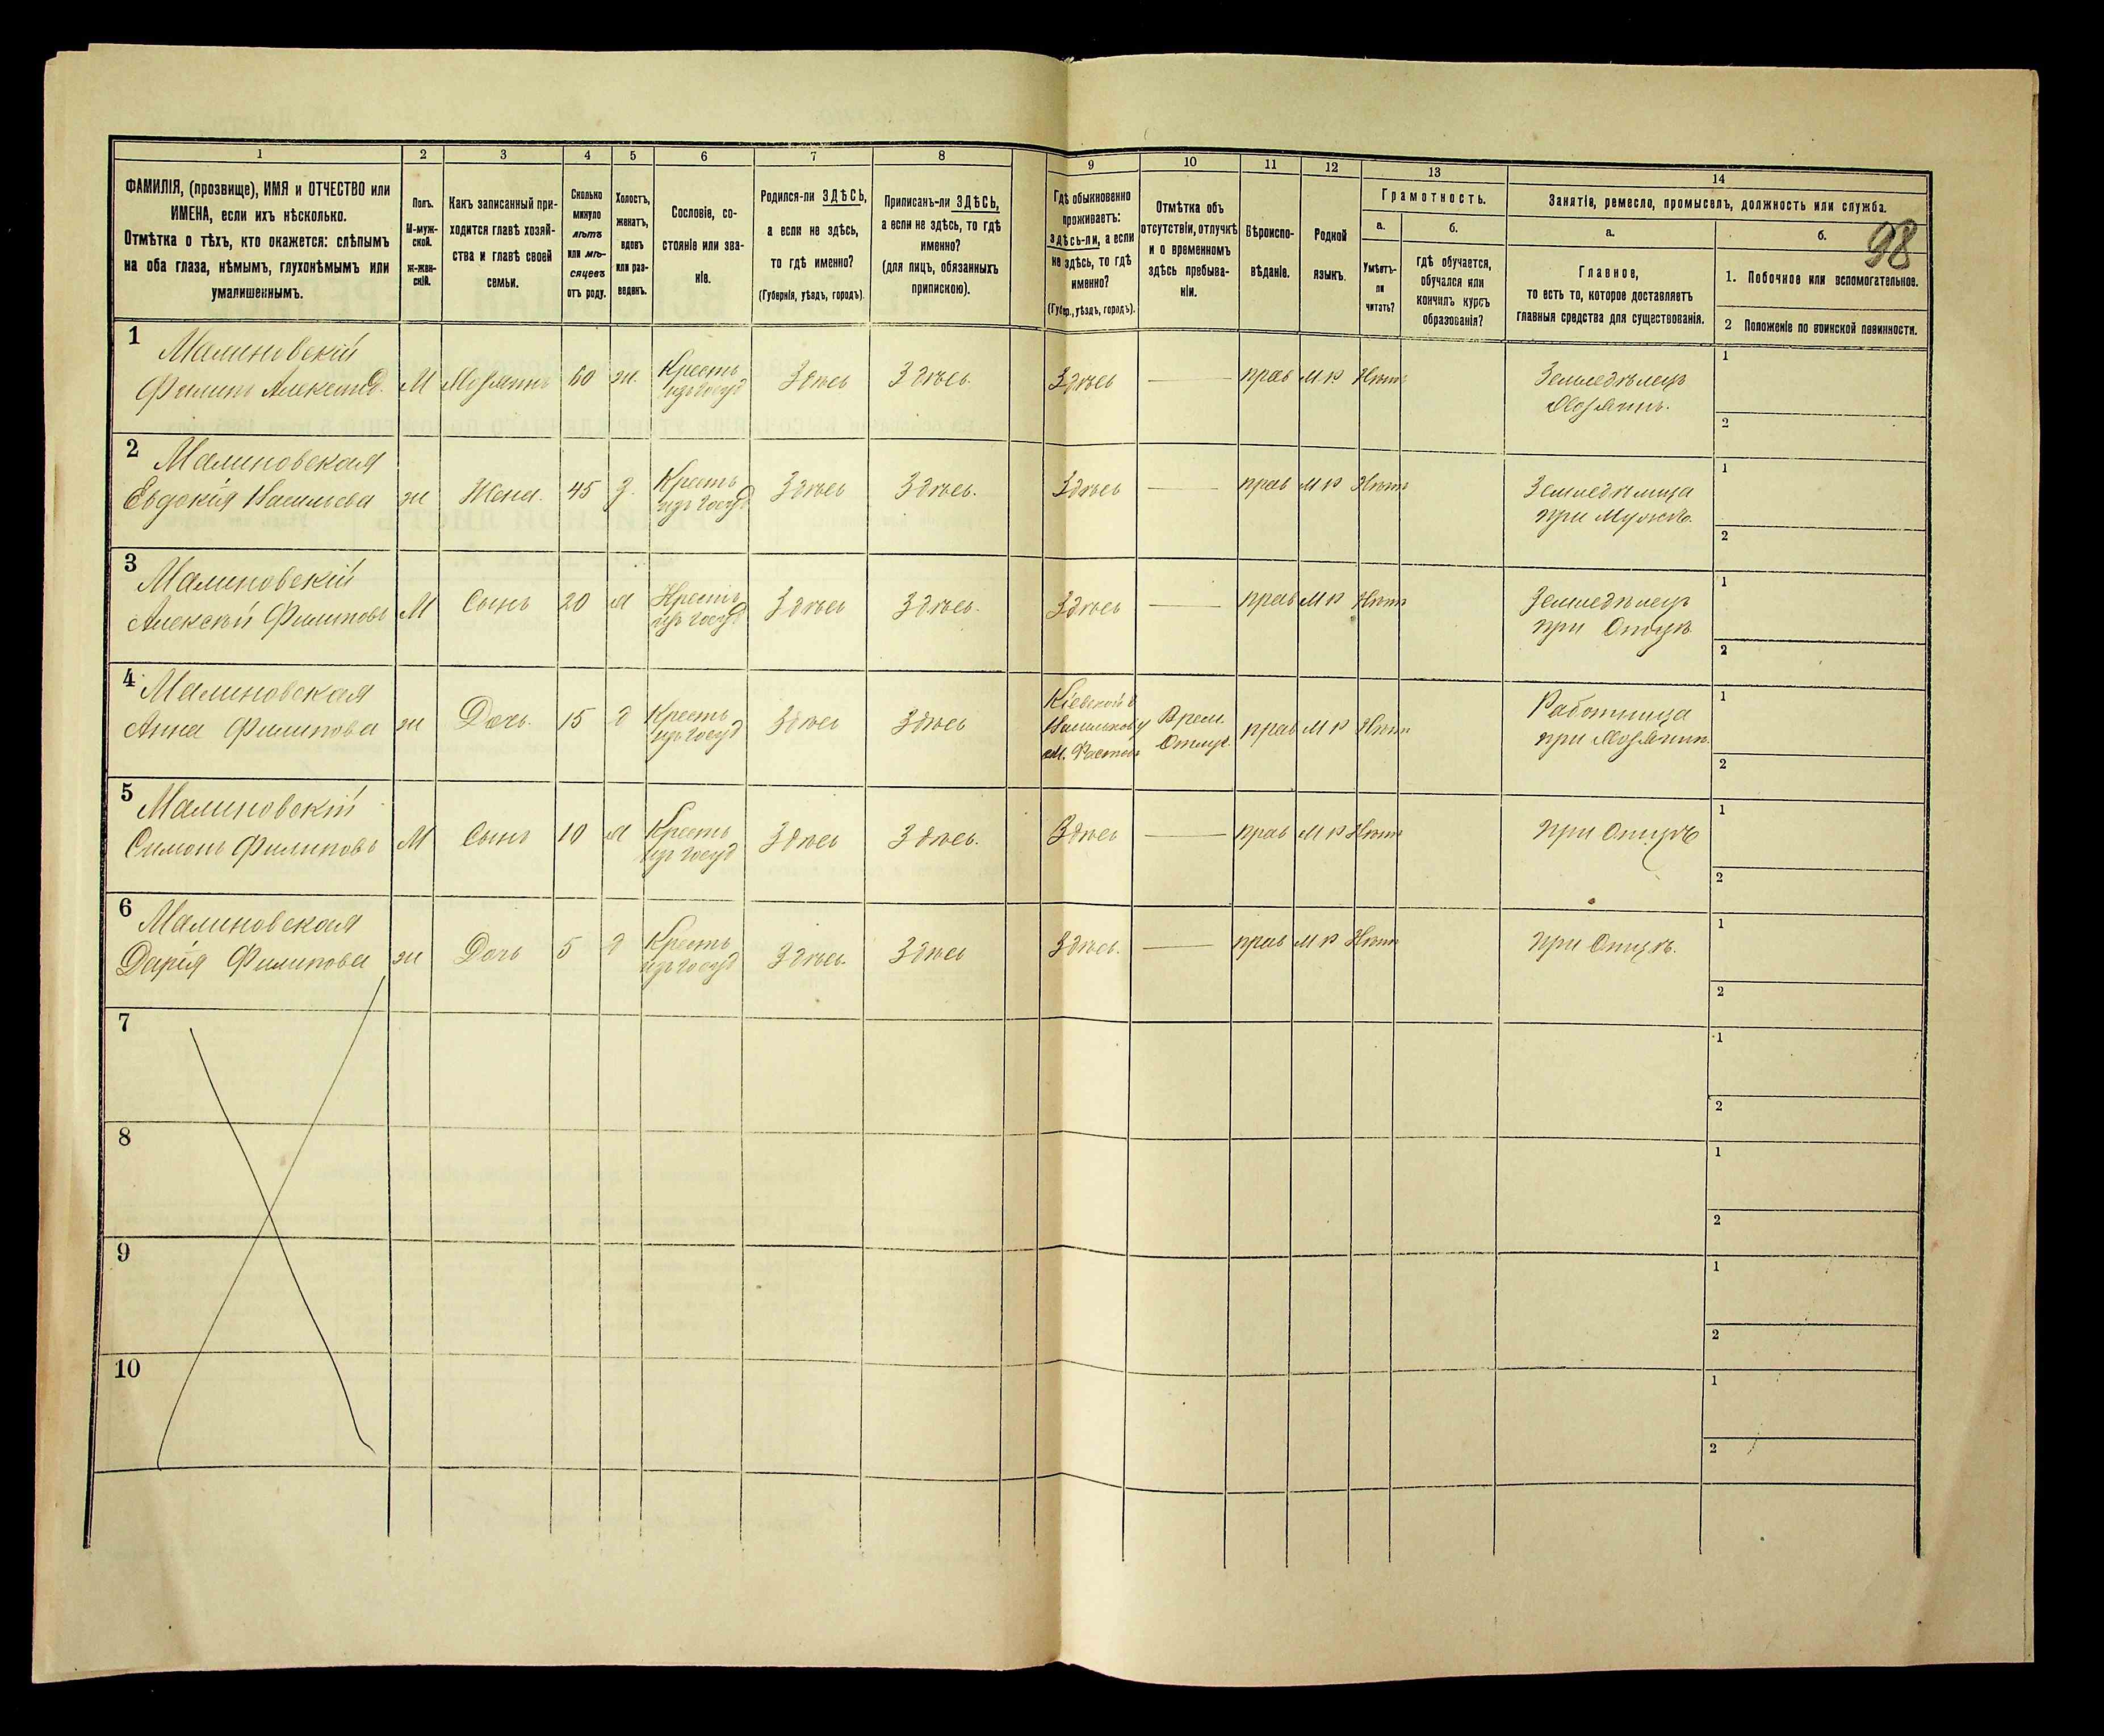 1 2 3 4 5 6 7 8 9 10 11 12 13 14
ФАМИЛІЯ, (прозвище), ИМЯ и ОТЧЕСТВО или
ИМЕНА, если ихъ нѣсколько.
Отмѣтка о тѣхъ, кто окажется: слѣпымъ
на оба глаза, нѣмымъ, глухонѣмымъ или
умалишеннымъ.
Полъ.
М-муж-
ской.
ж-жен-
скій.
Какъ записанный при-
ходится главѣ хозяй-
ства и главѣ своей
семьи.
Сколько
минуло
лѣтъ
или мѣ-
сяцевъ
отъ роду.
Холостъ,
женатъ,
вдовъ
или раз-
веденъ.
Сословіе, со-
стояніе или зва-
ніе.
Родился-ли ЗДѢСЬ,
а если не здѣсь,
то гдѣ именно?
(Губернія, уѣздъ, городъ).
Приписанъ-ли ЗДѢСЬ,
а если не здѣсь, то гдѣ
именно?
(для лицъ, обязанныхъ
припискою).
Гдѣ обыкновенно
проживаетъ:
здѣсь-ли, а если
не здѣсь, то гдѣ
именно?
(Губер., уѣздъ, городъ).
Отмѣтка объ
отсутствіи, отлучкѣ
и о временномъ
здѣсь пребыва-
ніи.
Вѣроиспо-
вѣданіе.
Родной
языкъ.
Грамотность.
а.
Умѣетъ-
ли
читать?
б.
гдѣ обучается,
обучался или
кончилъ курсъ
образованія?
Занятія, ремесло, промыселъ, должность или служба.
а.
Главное,
то есть то, которое доставляетъ
главныя средства для существованія.
б.
98
1. Побочное или вспомогательное.
2 Положеніе по воинской повинности.
1
Малиновскій
Филипъ Александ.
М Хозяинъ 60 ж. Кресть
изъ госуд
Здѣсь Здѣсь. Здѣсь — прав М р Нѣтъ
Земледѣлецъ
Хозяинъ.
1
2
2
Малиновская
Евдокія Васильева
ж Жена. 45 з. Кресть
изъ госуд
Здѣсь Здѣсь. Здѣсь — прав М р Нѣтъ
Земледѣлица
при Мужѣ.
1
2
3
Малиновскій
Алексѣй Филиповъ
М Сынъ 20 х Кресть
изъ госуд
Здѣсь Здѣсь. Здѣсь — прав М р Нѣтъ
Земледѣлецъ
при Отцѣ.
1
2
4
Малиновская
Анна Филипова
ж Дочь. 15 д Кресть
изъ госуд
Здѣсь Здѣсь
Кіевской г
Васильков у
м. Фастовъ
Врем.
Отлуч.
прав М р Нѣтъ
Работница
при Хозяинѣ.
1
2
5
Малиновскій
Симонъ Филиповъ
М Сынъ 10 х Кресть
изъ госуд
Здѣсь Здѣсь. Здѣсь — прав М р Нѣтъ
при Отцѣ
1
2
6
Малиновская
Дарія Филипова
ж Дочь 5 д Кресть
изъ госуд
Здѣсь. Здѣсь Здѣсь. — прав М р Нѣтъ
при Отцѣ.
1
2
7
1
2
8
1
2
9
1
2
10
1
2